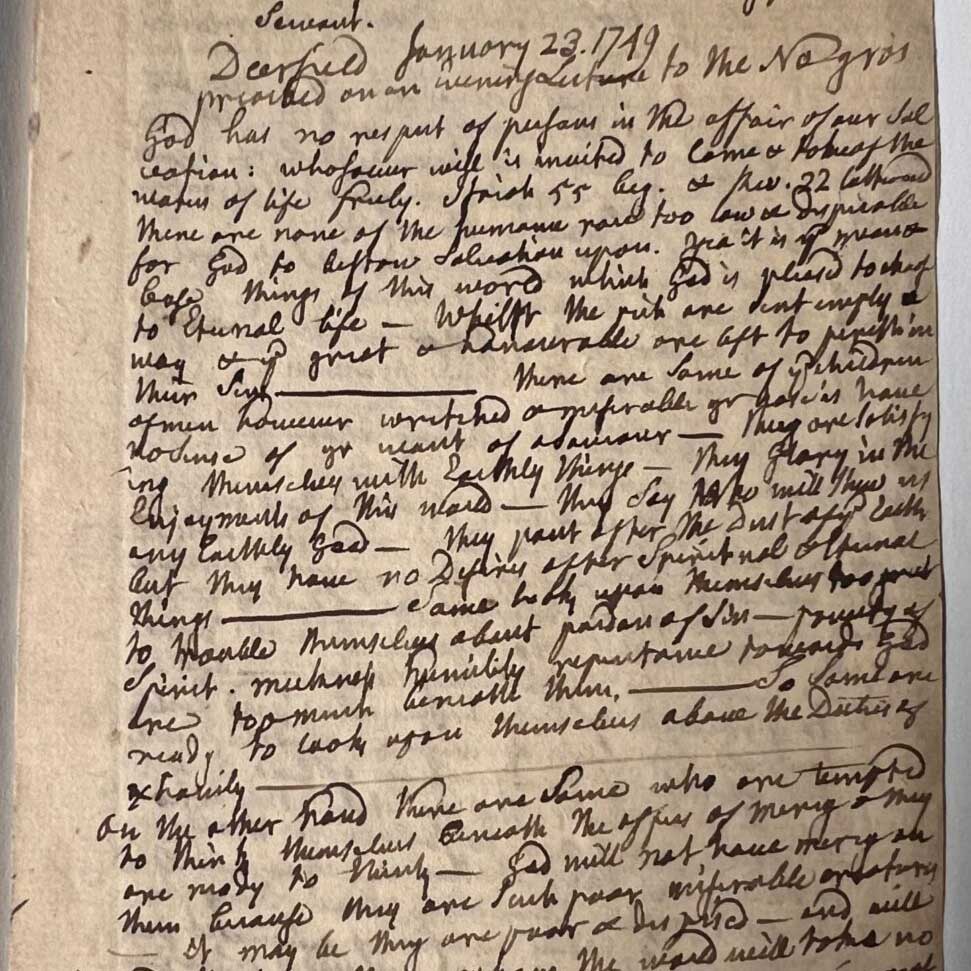 Servant.
Deerfield January 23. 1749
preached on an evening Lecture to the Negros
God has no respect of persons in the affair of our Sal
vation: whosoever will is invited to Come & take of the
waters of life freely. Isaiah 55 beg. & Rev. 22 latter end
there are none of the humane race too low & dispicable
for God to bestow Salvation upon. yea it is ye mean &
base things of this world which God is pleasd to
to Eternal life — Whilst the rich are sent empty a
way & ye great & honourable are left to perish in
their Sins — There are Some of ye children
of men however wretched & miserable yr case is have
no Sense of yr want of a Saviour — they are Satisfy
ing themselves with Earthly things — they Glory in the
Enjoyments of this world — they Say Who will Shew us
any Earthly Good — they pant after the Dust of ye Earth
but they have no Desires after Spiritual & Eternal
things — Some look upon themselves too great
to trouble themselves about pardon of Sin — poverty of
Spirit. meekness humility repentance towards God
are too much beneath them. — So Some are
ready to look upon themselves above the Duties of
xtianity —
On the other hand there are Some who are tempted
to think themselves beneath the offers of mercy & they
are ready to think — God will not have mercy on
them because they are Such poor miserable creatures
— it may be they are poor & dispised — and will
the world will take no